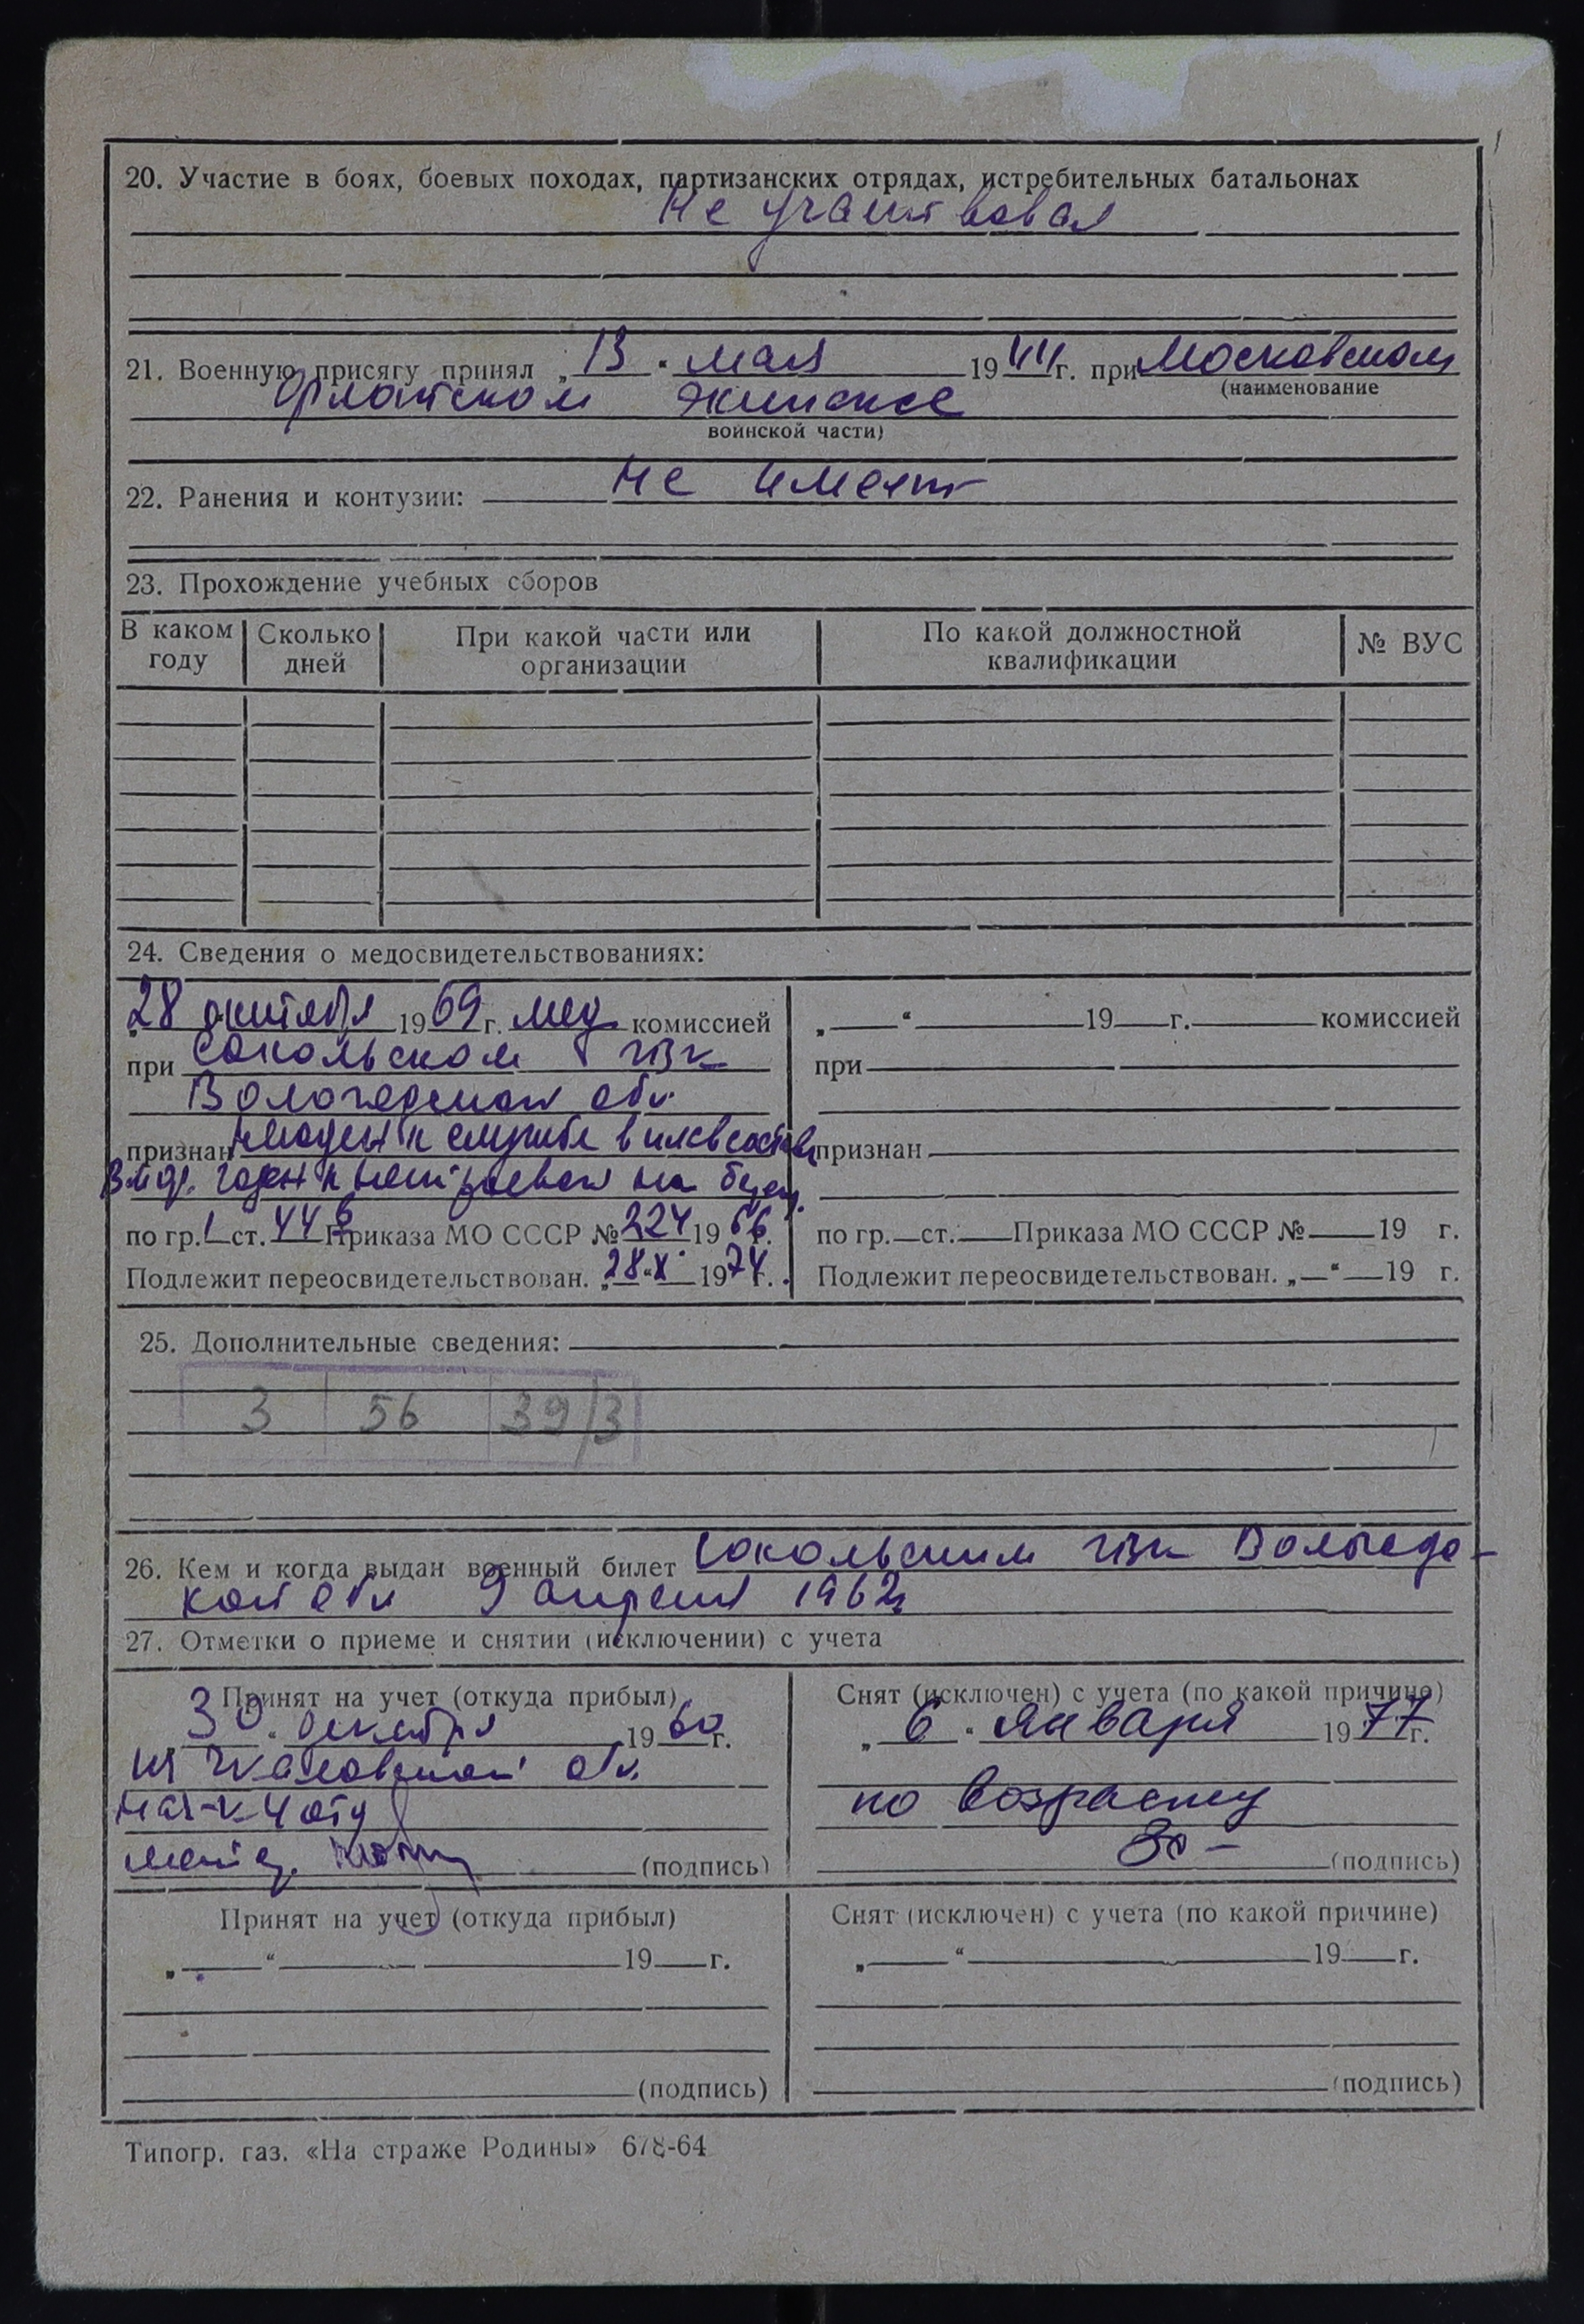 20. Участие в боях, боевых походах, партизанских отрядах, истребительных батальонах
Не участвовал
21. Военную присягу принял „13“ мая 1944г. при Московском
(наименование
флотском экипаже
воинской части)
22. Ранения и контузии: Не имеет
23. Прохождение учебных сборов
В каком году | Сколько дней | При какой части или организации | По какой должностной квалификации | № ВУС
24. Сведения о медосвидетельствованиях:
28 октября 1969г. мед комиссией
при Сокольском ГВК
Вологодской обл.
признан негоден к службе в плавсоставе
В МФ. годен к нестроевой на берегу.
по гр. I ст. 44 б Приказа МО СССР № 224 1966 г.
Подлежит переосвидетельствован. „28“ X 1974 г.
„ “ 19 г. комиссией
при
признан
по гр. ст. Приказа МО СССР № 19 г.
Подлежит переосвидетельствован. „ “ 19 г.
25. Дополнительные сведения:
3 | 56 | 39/3
26. Кем и когда выдан военный билет Сокольским ГВК Вологдс-
кой обл 9 апреля 1962г
27. Отметки о приеме и снятии (исключении) с учета
Принят на учет (откуда прибыл)
30 „ “ декабря 1960 г.
из обл.
(подпись)
Снят (исключен) с учета (по какой причине)
„6“ января 1977г.
по возрасту
(подпись)
Принят на учет (откуда прибыл)
„ “ 19 г.
(подпись)
Снят (исключен) с учета (по какой причине)
„ “ 19 г.
(подпись)
Типогр. газ. «На страже Родины» 678-64